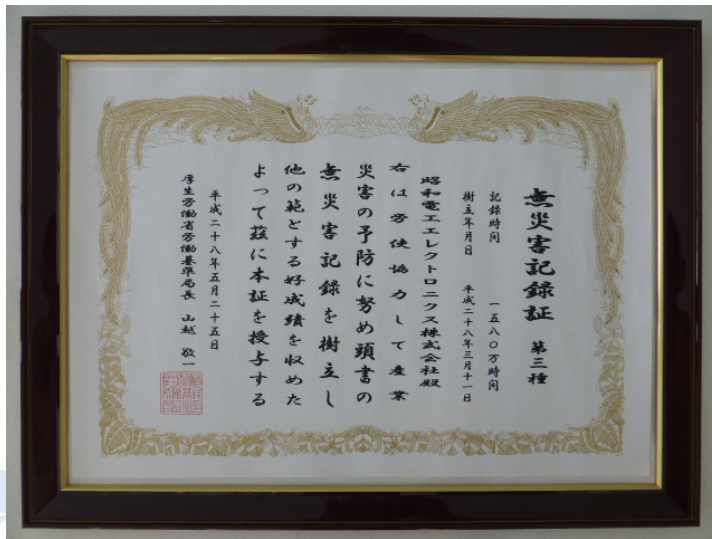 無災害記録証 第三種
記録時間 一五八〇万時間
樹立年月日 平成二十八年三月十一日
昭和電工エレクトロニクス株式会社殿
右は労使協力して産業
災害の予防に努め頭書の
無災害記録を樹立し
他の範とする好成績を収めた
よって茲に本証を授与する
平成二十八年五月二十五日
厚生労働省労働基準局長 山越 敬一